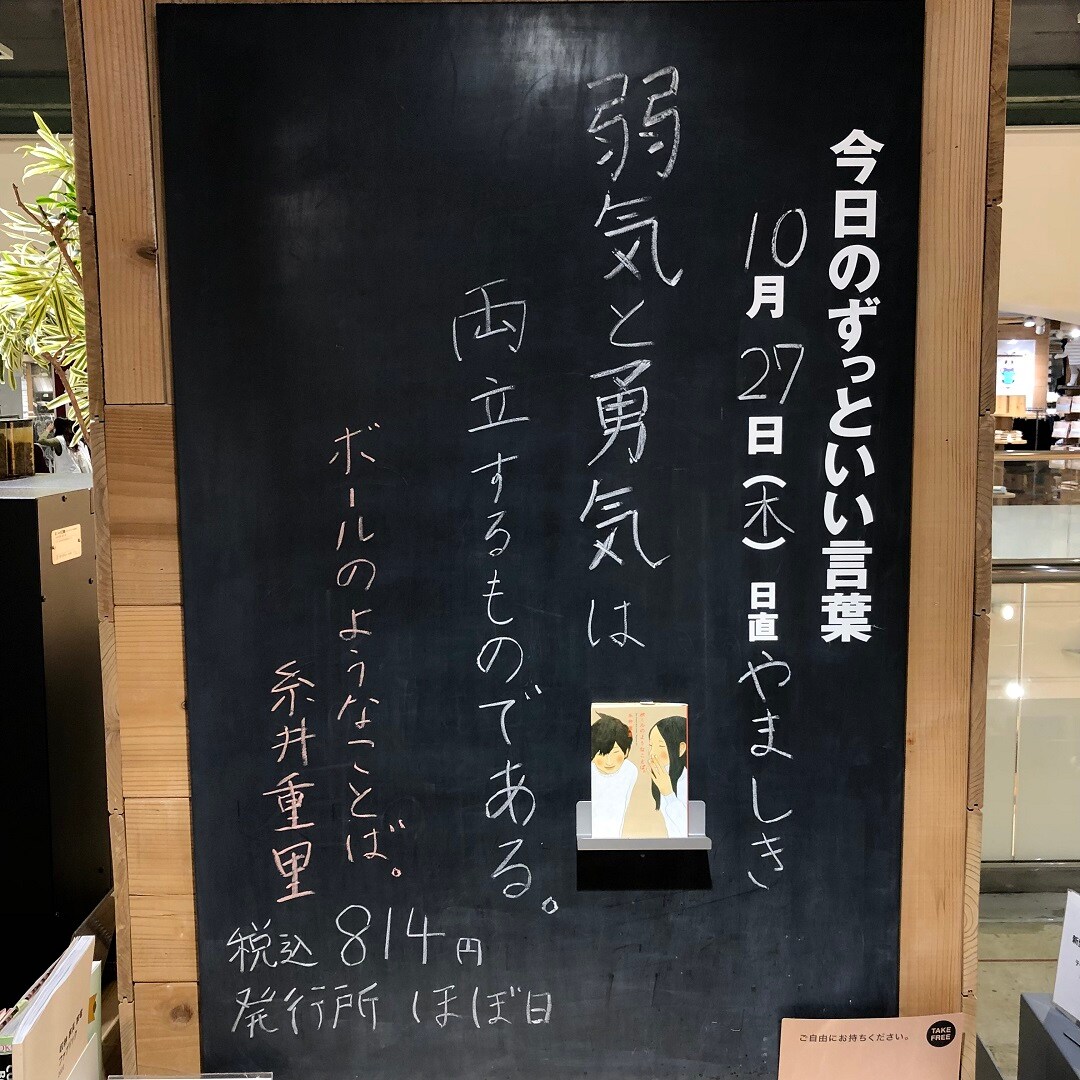 今日のずっといい言葉
10月27日(木) 日直 やましき
弱気と勇気は
両立するものである。
ボールのようなことば。
糸井重里
税込 814円
発行所 ほぼ日
ご自由にお持ちください。
TAKE FREE